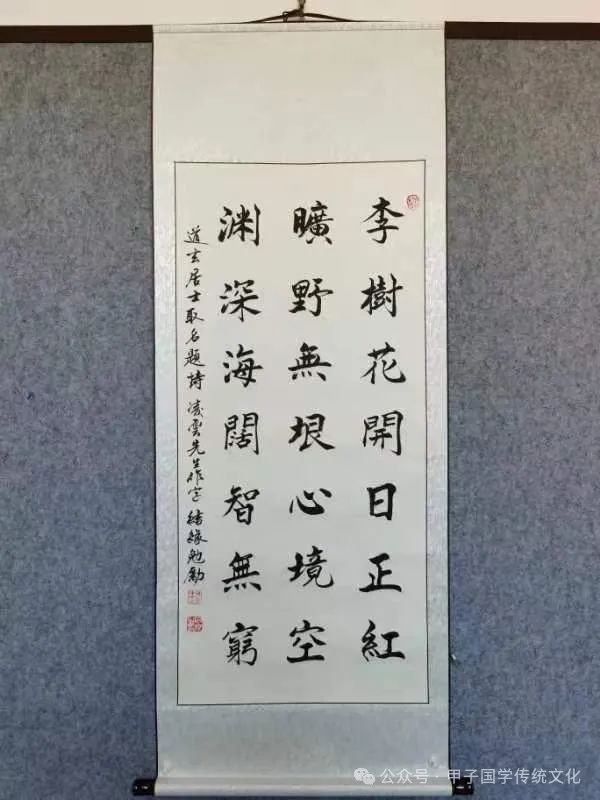 李樹花開日正紅
曠野無垠心境空
渊深海闊智無窮
道玄居士取名題詩 凌雲先生作字 结緣勉勵
公众号 · 甲子国学传统文化